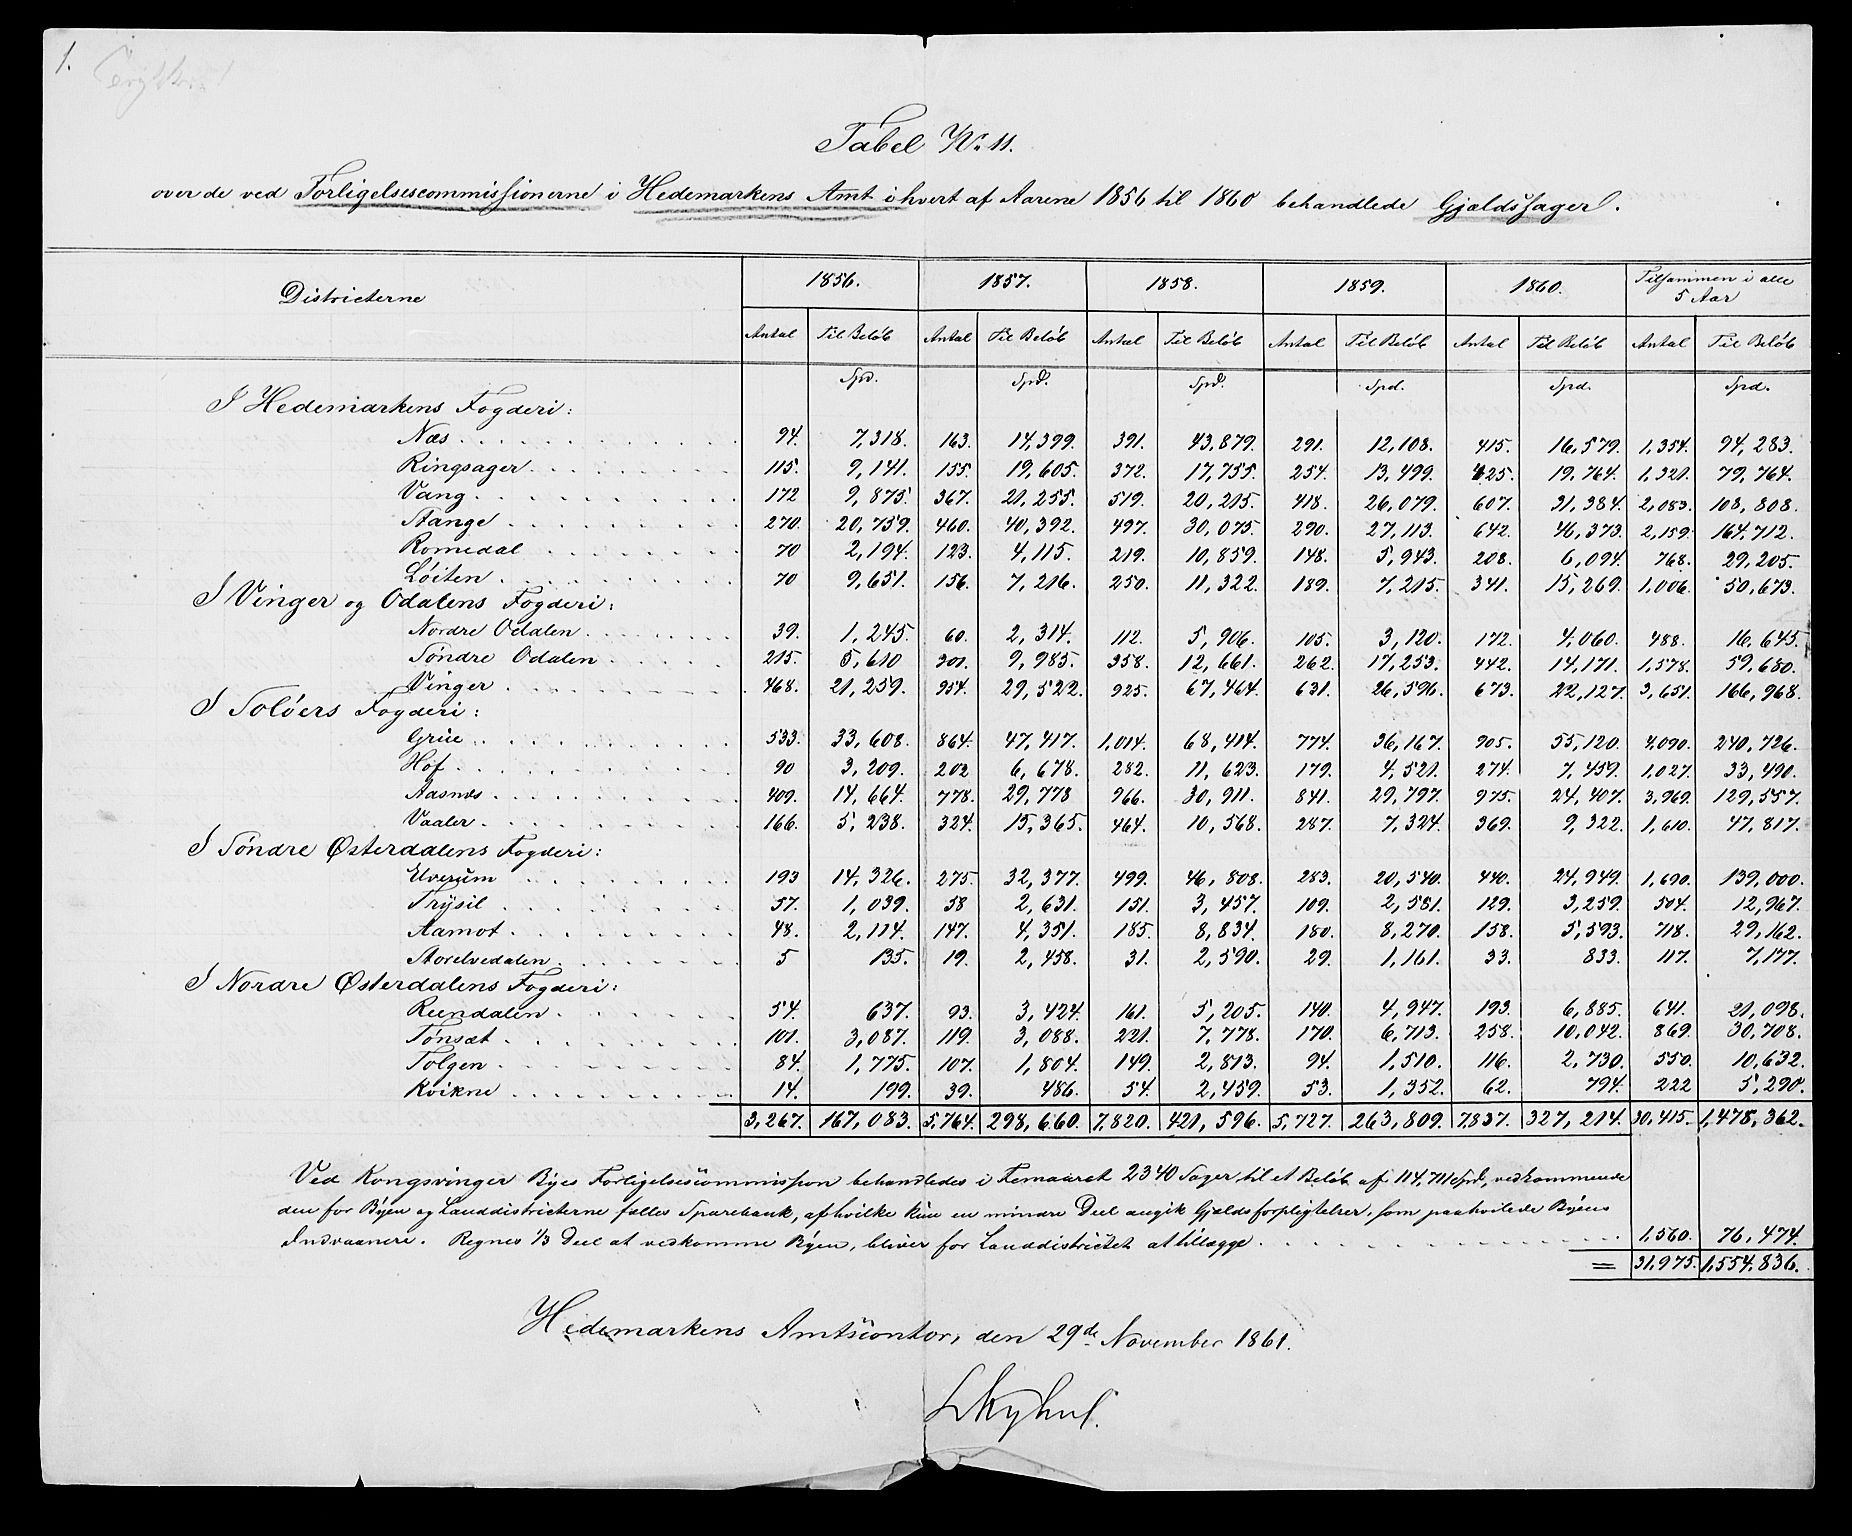 1.
Tabel No 11.
over de ved Forligelsescommissionerne i Hedemarkens Amt i hvert af Aarene 1856 til 1860 behandlede Gjældssager.
Districterne 1856. 1857. 1858. 1859. 1860. Tilsammen i alle 5 Aar
Antal Til Beløb Antal Til Beløb Antal Til Beløb Antal Til Beløb Antal Til Beløb Antal Til Beløb
Spd. Spd. Spd. Spd. Spd. Spd.
I Hedemarkens Fogderi:
Næs 94. 7,318. 163. 14,399. 391. 43,879. 291. 12,108. 415. 16,579. 1,354. 94,283.
Ringsager 115. 9,141. 155. 19,605. 372. 17,755. 254. 13,499. 425. 19,764. 1,321. 79,764.
Vang 172 9,875. 367. 21,255. 519. 20,215. 418. 26,079. 607. 31,384. 2,083. 108,808.
Stange 270. 20,759. 460. 40,392. 497. 30,075. 290. 27,113. 642. 46,373. 2,159. 164,712.
Romedal 70 2,194. 123. 4,115. 219. 10,859. 148. 5,943. 208. 6,094. 768. 29,205.
Løiten 70 9,651. 156. 7,216. 250. 11,322. 189. 7,215. 341. 15,269. 1,006. 50,673.
I Vinger og Odalens Fogderi:
Nordre Odalen 39. 1,245. 60. 2,314. 112. 5,906. 105. 3,120. 172. 4,060. 488. 16,645.
Søndre Odalen 215. 5,610 301. 9,985. 358. 12,661. 262. 17,253. 442. 14,171. 1,578. 59,680.
Vinger 468. 21,259. 954. 29,522. 925. 67,464. 631. 26,596. 673. 22,127. 3,651. 166,968.
I Soløers Fogderi:
Grue 533. 33,608. 864. 47,417. 1,014. 68,414. 774. 36,167. 905. 55,120. 4,090. 240,726.
Hof 90 3,209. 202 6,678. 282. 11,623. 179. 4,521. 274. 7,459. 1,027. 33,490.
Aasnes 409. 14,664. 778. 29,778 966. 30,911. 841. 29,797. 975. 24,407. 3,969. 129,557.
Vaaler 166. 5,238. 324. 15,365. 464. 10,568. 287. 7,324. 369. 9,322. 1,610. 47,817.
I Søndre Østerdalens Fogderi:
Elverum 193 14,326. 275. 32,377. 499. 46,808. 283. 20,540. 440. 24,949. 1,690. 139,000.
Trysil 57. 1,039. 58 2,631. 151. 3,457. 109. 2,581. 129. 3,259. 504. 12,967.
Aamot 48. 2,114. 147. 4,351. 185. 8,834. 180. 8,270. 158. 5,593. 718. 29,162.
Storelvedalen 5 135. 19. 2,458. 31. 2,590. 29. 1,161. 33. 833. 117. 7,177.
I Nordre Østerdalens Fogderi:
Reendalen 54. 637. 93. 3,424. 161. 5,205. 140. 4,947. 193. 6,885. 641. 21,098.
Tønsæt 101. 3,087. 119. 3,088. 221. 7,778. 170. 6,713. 258. 10,042. 869. 30,708.
Tolgen 84. 1,775. 107. 1,804. 149. 2,813. 94. 1,510. 116. 2,730. 550. 10,632.
Kvikne 14. 199. 39. 486. 54. 2,459. 53. 1,352. 62. 794. 222 5,290.
3,267. 167,083. 5,764. 298,660. 7,820. 421,596. 5,727. 263,809. 7,837. 327,214. 30,415. 1,478,362.
Ved Kongsvinger Byes Forligelsescommission behandledes i Femaaret 2340 Sager til et Beløb af 114,711 Spd, vedkommende
den for Byen og Landdistricterne fælles Sparebank, af hvilke kun en mindre Deel angik Gjældsforpligtelser, som paahvilede Byens
Indvaanere. Regnes 1/3 Deel at vedkomme Byen, bliver for Landdistrictet at tillægge 1,560. 76,474.
= 31,975. 1,554,836.
Hedemarkens Amtscontor, den 29de November 1861.